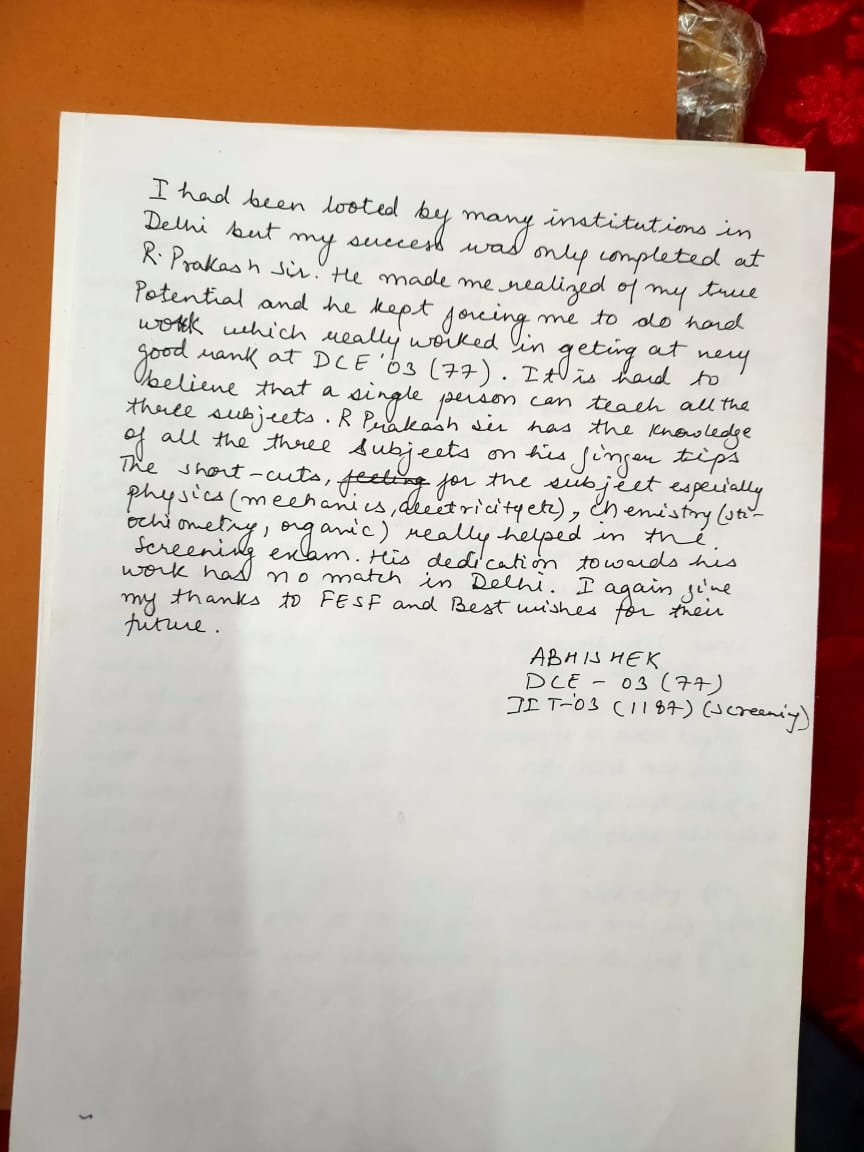 I had been looted by many institutions in
Delhi but my success was only completed at
R. Prakash Sir. He made me realized of my true
Potential and he kept forcing me to do hard
work which really worked in geting at very
good rank at DCE '03 (77). It is hard to
believe that a single person can teach all the
three subjects. R Prakash sir has the knowledge
of all the three subjects on his finger tips
The short-cuts, feeling for the subject especially
physics (mechanics, electricity etc), chemistry (sti-
ochiometry, organic) really helped in the
screening exam. His dedication towards his
work has no match in Delhi. I again give
my thanks to FESF and Best wishes for their
future.
ABHISHEK
DCE - 03 (77)
IIT-'03 (1187) (screening)